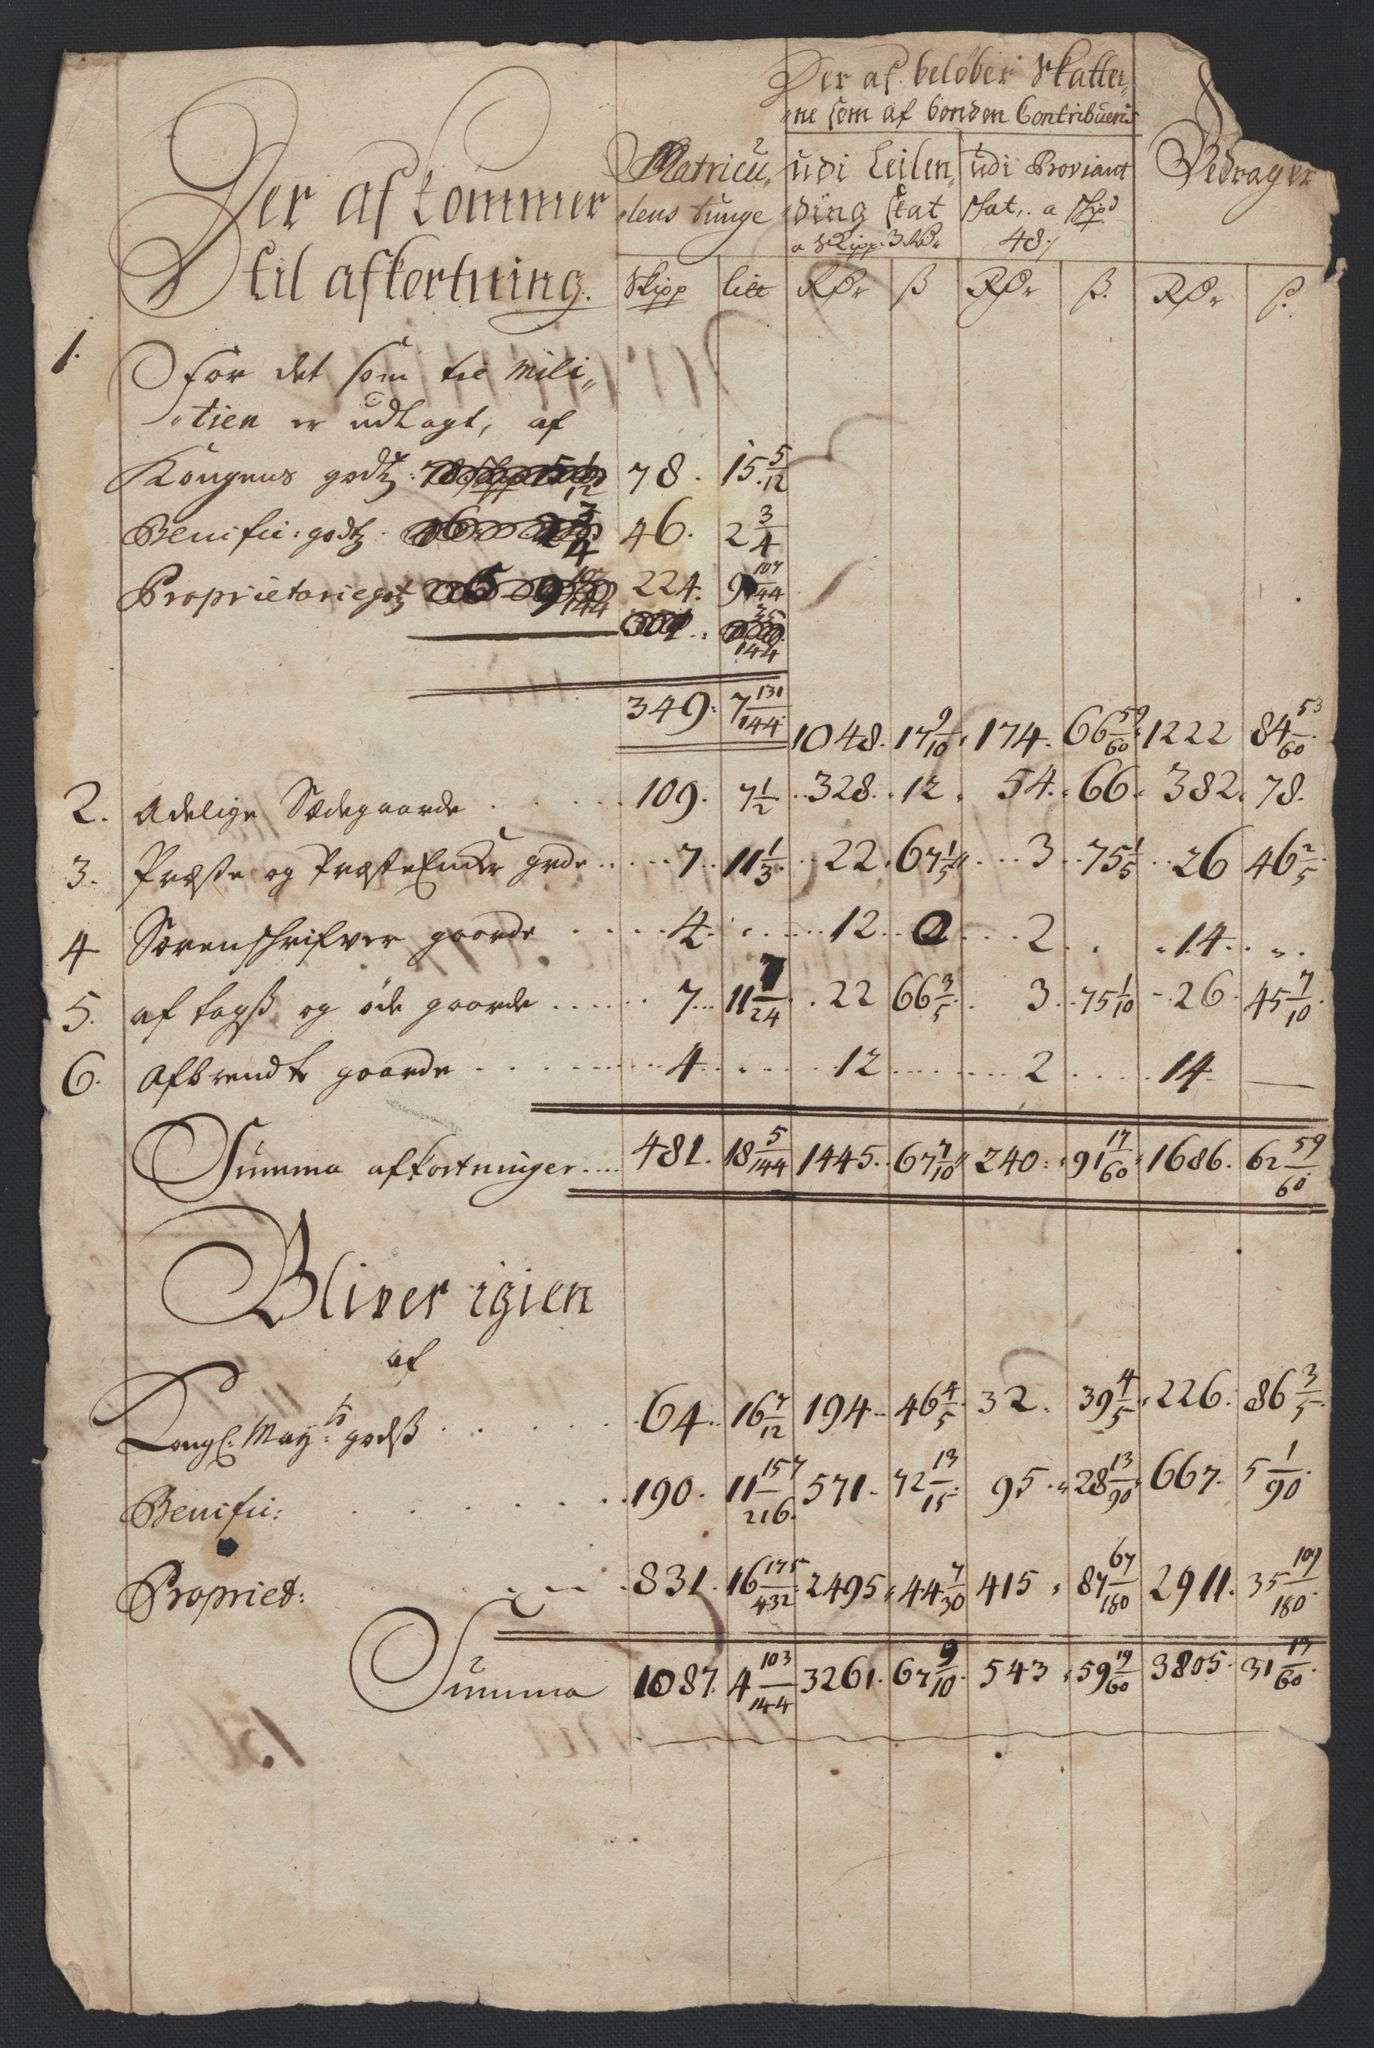 Der af beløber Skatter„
„ne som af bonden Contribueris
Der af kommer
til afkortning.
Matricu„
„lens tunge
udi Leilen„
„ding skat
a Skipp: 3 Mk
udi Proviant
skat, a Skpd
48 ß
Bedrager
Skipp litt Rdr ß Rdr ß. Rdr ß.
1. For det som til Mili„
„tien er udlagt, af
Kongens godtz: 78. 15 5/12
Benifici: godtz 46. 2 3/4
Proprietariegotz 224. 9 107/144
349: 7 131/144 1048. 17 9/10 174. 66 59/60 1222 84 53/60
2. Adelige Sædegaarde 109. 7 1/2 328. 12 54. 66 382. 78.
3. Præste og PræsteEnkr grde 7 11 1/3 22 67 1/5 3 75 1/5 26 46 2/5
4 Sorenschrifver gaarde 4 12 0 2 14
5. af tagß og øde gaarde 7 11 7/24 22 66 3/5 3 75 1/10 26 45 7/10
6. Afbrendte gaarde 4 12 2 14 —
Summa afkortninger 481. 18 5/144 1445. 67 7/10 240: 91 17/60 1686. 62 59/60
Bliver igien
af
Kongl: Mayts godß 64. 16 7/12 194 46 4/5 32. 39 4/5 226: 86 3/5
Benifici: 190. 11 157/216 571. 72 13/15 95 28 13/90 667. 5 1/90
Propriet: 831. 16 175/432 2495 44 7/30 415 87 67/180 2911. 35 109/180
Summa 1087. 4 103/144 3261. 67 9/10 543 59 19/60 3805. 31 13/60